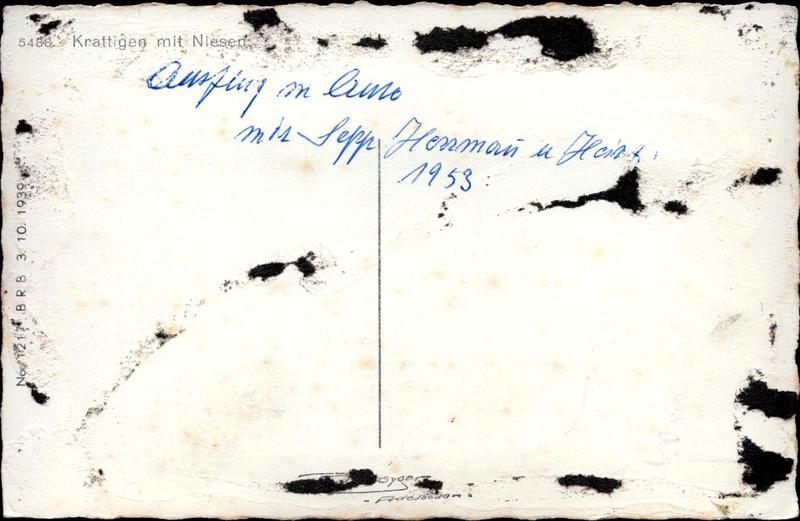 5488 Krattigen mit Niesen
Ausflug m Auto
mit Sepp Herrman u
1953
No. 12171 BRB 3. 10. 1939
Gyger
Adelboden